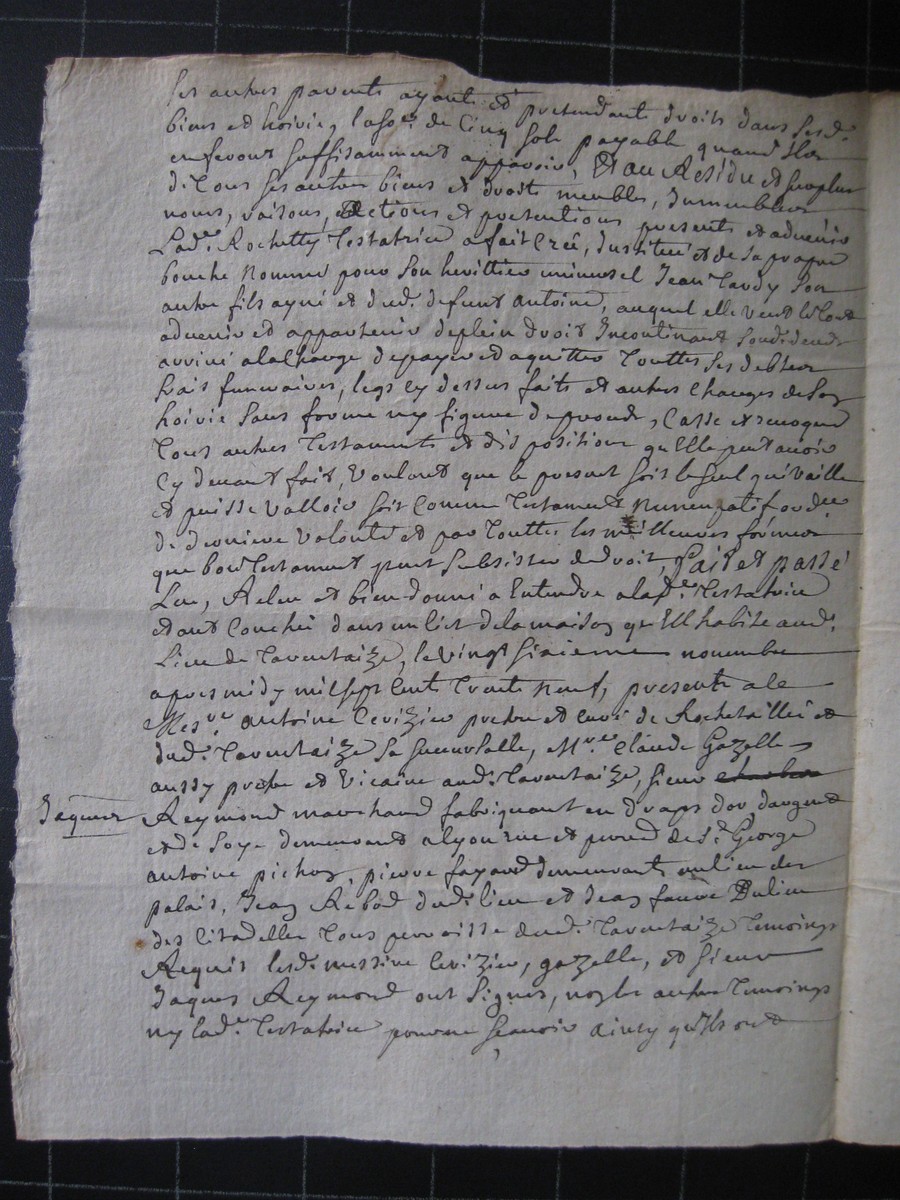 ses autres parents ayants et pretendants droits dans sesd.
biens et hoirie, la so.e de Cinq sols payable quand ilz
en feront suffisamment apparoir, Et au Residu et surplus
de Tous ses autres biens et droits meubles, Immeubles
noms, raisons, Actions et pretentions presents et advenir
Lad.e Rochetty Testatrice a fait Créé, Institué et de sa propre
bouche nommé pour son heritier universel Jean Tardy son
autre fils ayné et dud. defunt antoine, auquel elle veut le tout
advenir et appartenir de plein droit Incontinant sond. deceds
arrivé a la Charge de payer et aquitter Touttes ses debtes
frais funeraires, legs cy dessus faits et autres Charges de son
hoirie sans forme ny figure de procés, Casse et revoque
Tous autres Testaments et dispositions qu'Elle peut avoir
Cy devant fait, Voulant que le present soit le seul qui vaille
et puisse valloir soit Comme Testament Nuncupatif ou d.ee
de derniere volonté et par Touttes les meilleures formes
que bon Testament peut subsister de droit, fait et passé
Leu, Releu et bien donné a Entendre a lad.e Testatrice
etant Couchée dans un lict de la maison qu'Ell habite aud.
Lieu de Tarentaize, le vingt sixieme novembre
apres midy mil sept Cents Trente Neuf, presents a ce
Mes.re antoine Cerizier prestre et curé de Rochetaillée et
dud. Tarentaize sa succursalle, M.re Claude Gazelle
aussy prestre et Vicaire aud. Tarentaize, sieur
Jaques Reymond marchand fabriquant en draps d'or d'argent
et de soye demeurant a lyon rue et paroisse de S.t George
antoine pichon, pierre fayard demeurants au lieu des
palais, Jean Rebod dud. lieu et Jean faure Du lieu
des Citadelles Tous parroisse dud. Tarentaize Temoings
Requis lesd. messire Cerizier, gazelle, et sieur
Jaques Reymond ont Signés, non les autres Temoings
ny lad.e Testatrice pour ne sçavoir ainsy qu'ils ont